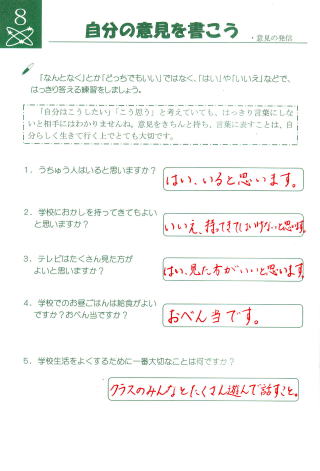 8
自分の意見を書こう
・意見の発信
「なんとなく」とか「どっちでもいい」ではなく、「はい」や「いいえ」などで、
はっきり答える練習をしましょう。
「自分はこうしたい」「こう思う」と考えていても、はっきり言葉にしな
いと相手にはわかりませんね。意見をきちんと持ち、言葉に表すことは、自
分らしく生きて行く上でとても大切です。
1．うちゅう人はいると思いますか？
はい、いると思います。
2．学校におかしを持ってきてもよい
と思いますか？
いいえ、持ってきてはいけないと思います。
3．テレビはたくさん見た方が
よいと思いますか？
はい、見た方がいいと思います。
4．学校でのお昼ごはんは給食がよい
ですか？おべん当ですか？
おべん当です。
5．学校生活をよくするために一番大切なことは何ですか？
クラスのみんなとたくさん遊んで話すこと。